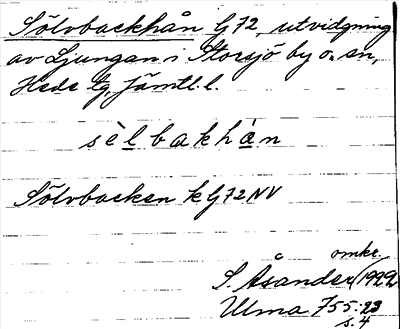 Sölvbackhån G72, utvidgning
av Ljungan i Storsjö by o. sn,
Hede tg, Jämtl. l.
sèlbakhàn
Sölvbacken k G72 NV
omkr.
S. Åsander (1922)
Ulma 755:23
s. 4